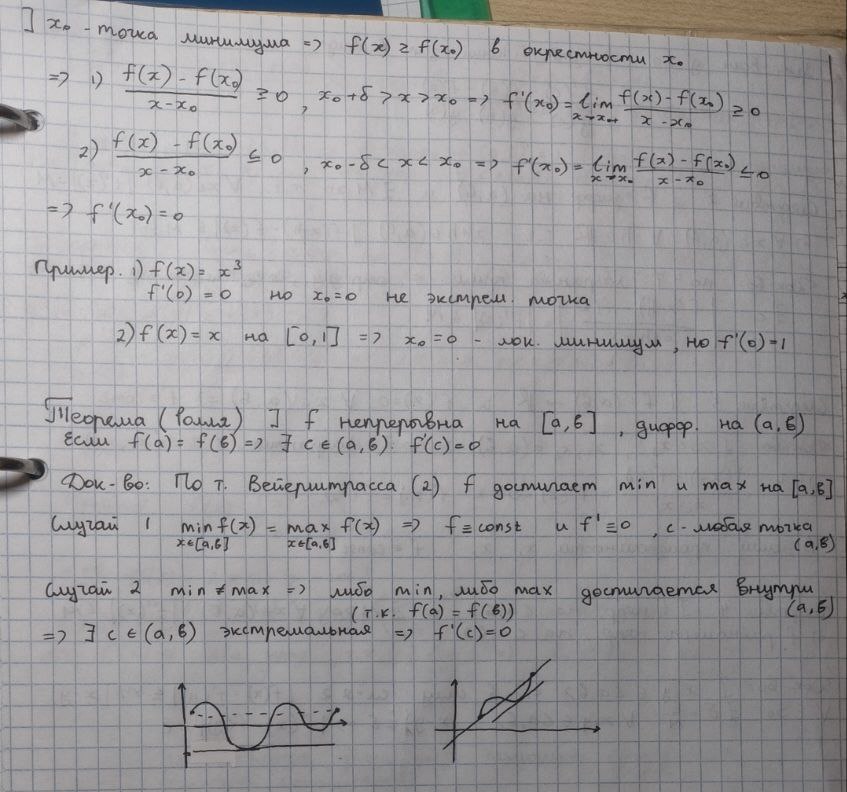 ] x₀ - точка минимума => f(x) ≥ f(x₀) в окрестности x₀
=> 1) (f(x) - f(x₀))/(x - x₀) ≥ 0 , x₀+δ > x > x₀ => f'(x₀) = lim_{x→x₀+} (f(x) - f(x₀))/(x - x₀) ≥ 0
2) (f(x) - f(x₀))/(x - x₀) ≤ 0 , x₀-δ < x < x₀ => f'(x₀) = lim_{x→x₀} (f(x) - f(x₀))/(x - x₀) ≤ 0
=> f'(x₀) = 0
Пример. 1) f(x) = x³
f'(0) = 0 но x₀=0 не экстрем. точка
2) f(x) = x на [0,1] => x₀=0 - лок. минимум, но f'(0)=1
Теорема (Ролля) ] f непрерывна на [a,b] , диффер. на (a,b)
Если f(a) = f(b) => ∃ c ∈ (a,b): f'(c)=0
Док-во: По т. Вейерштрасса (2) f достигает min и max на [a,b]
Случай 1 min_{x∈[a,b]} f(x) = max_{x∈[a,b]} f(x) => f ≡ const и f' ≡ 0 , c - любая точка
(a,b)
Случай 2 min ≠ max => либо min, либо max достигается внутри
(т.к. f(a) = f(b)) (a,b)
=> ∃ c ∈ (a,b) экстремальная => f'(c)=0